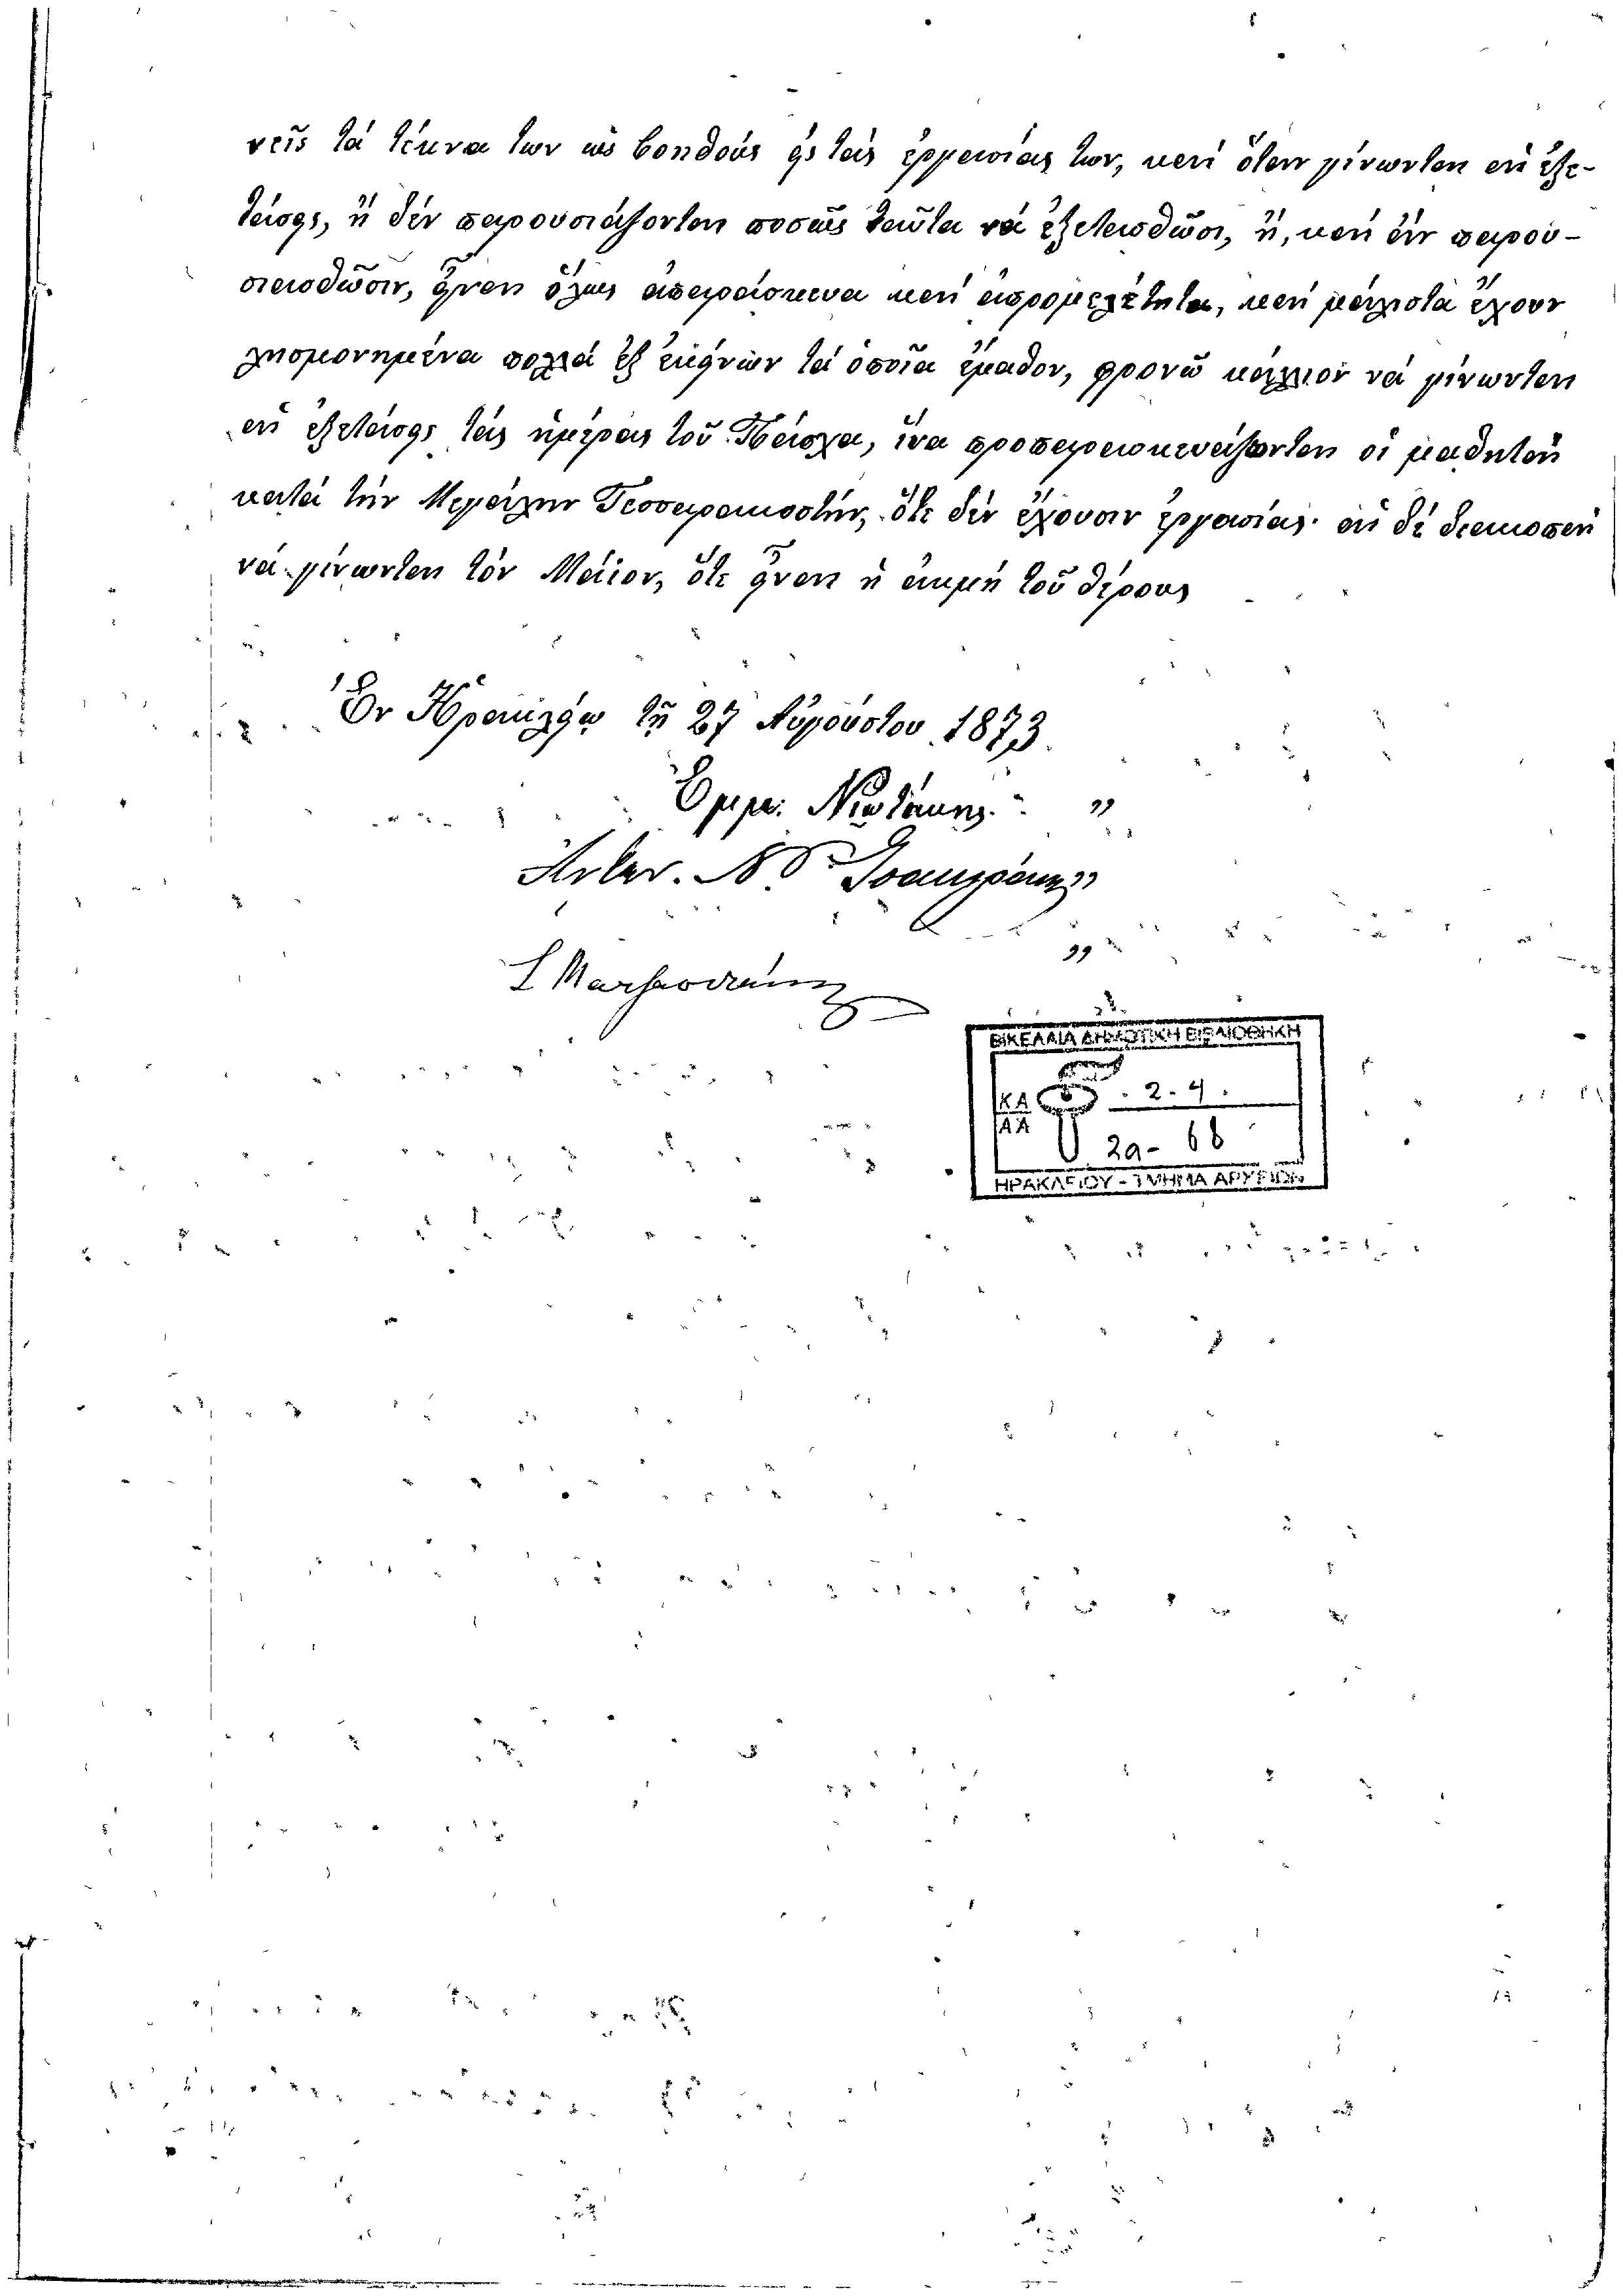 νεῖς τά τέκνα των ὡς βοηθούς εἰς τάς ἐργασίας των, καί ὅταν γίνωνται αἱ ἐξε-
τάσεις, ἤ δέν παρουσιάζονται ποσῶς ταῦτα νά ἐξετασθῶσι, ἤ, καί ἐάν παρου-
σιασθῶσιν, εἶναι ὅλως ἀπαράσκευα καί ἀπρομελέτητα, καί μάλιστα ἔχουν
λησμονημένα πολλά ἐξ ἐκείνων τά ὁποῖα ἔμαθον, φρονῶ κάλλιον νά γίνωνται
αἱ ἐξετάσεις τάς ἡμέρας τοῦ Πάσχα, ἵνα προπαρασκευάζωνται οἱ μαθηταί
κατά τήν Μεγάλην Τεσσαρακοστήν, ὅτε δέν ἔχουσιν ἐργασίας· αἱ δέ διακοπαί
νά γίνωνται τόν Μάϊον, ὅτε εἶναι ἡ ἀκμή τοῦ θέρους
Ἐν Ἡρακλείῳ τῇ 27 Αὐγούστου 1873
Ἐμμ. Νιωτάκης "
Ἀντων.
"
ΒΙΚΕΛΑΙΑ ΔΗΜΟΤΙΚΗ ΒΙΒΛΙΟΘΗΚΗ
ΚΑ . 2-4 .
ΑΑ 2α- 68
ΗΡΑΚΛΕΙΟΥ - ΤΜΗΜΑ ΑΡΧΕΙΩΝ